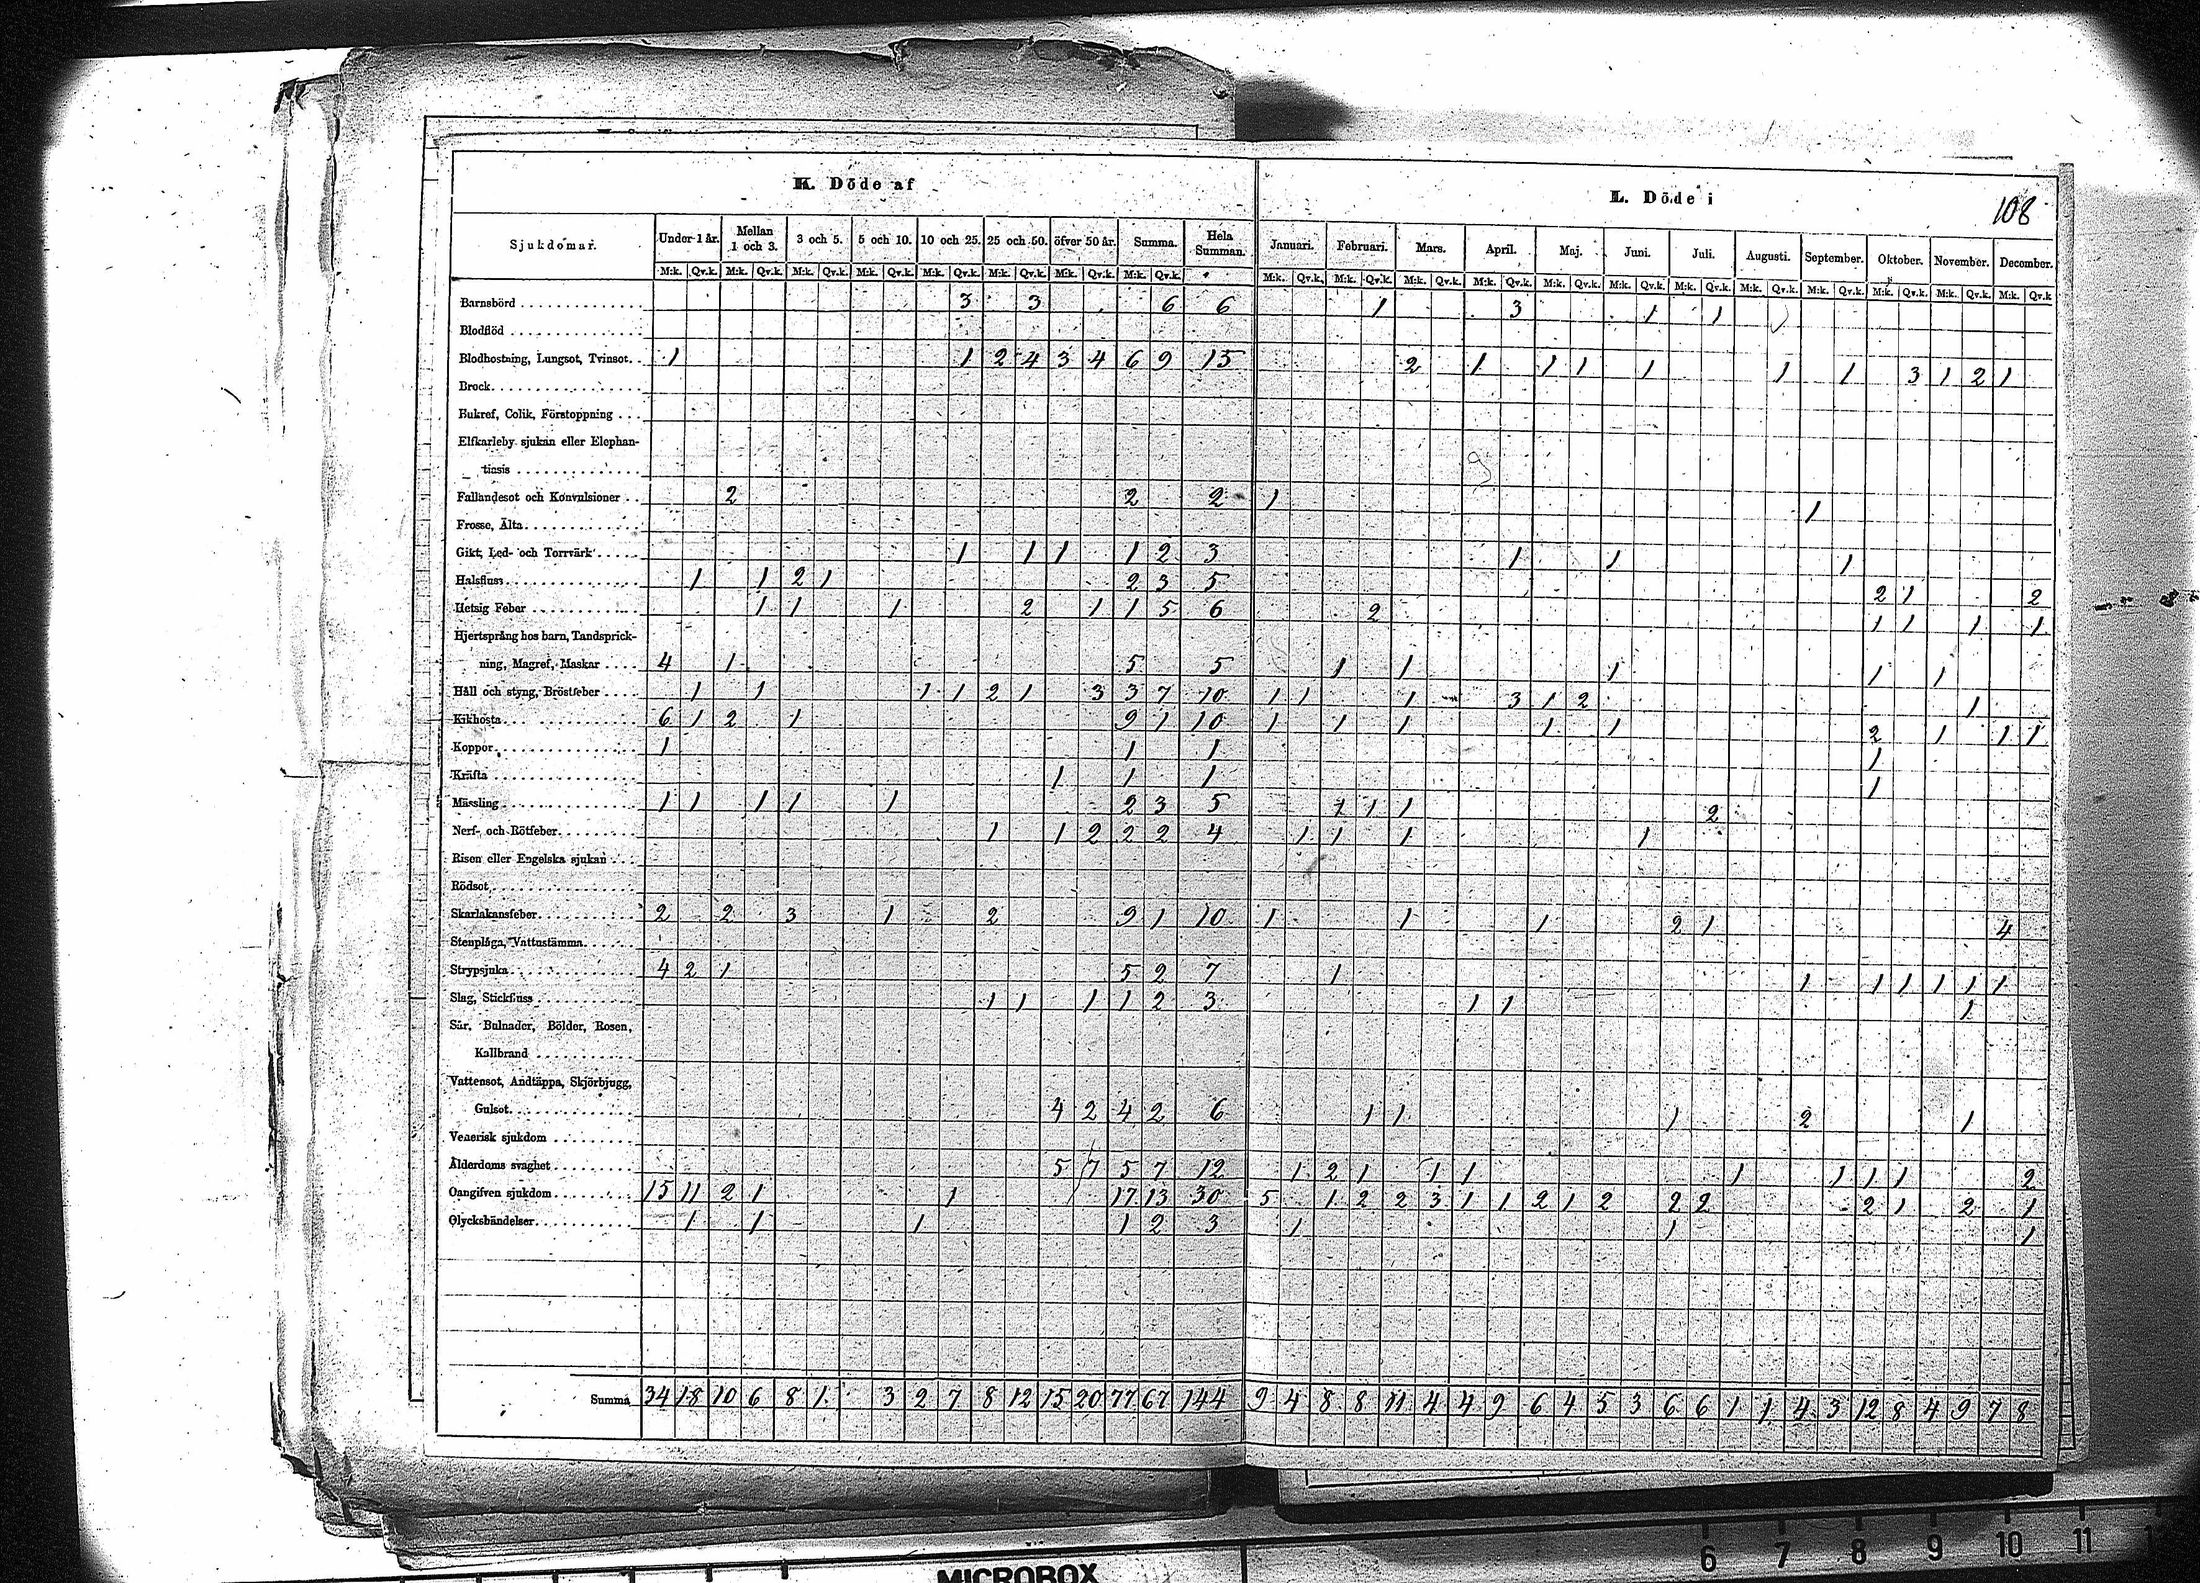 K. Döde af
L. Döde i
108
Sjukdomar. Under 1 år. Mellan 1 och 3. 3 och 5. 5 och 10. 10 och 25. 25 och 50. öfver 50 år. Summa. Hela Summan. Januari. Februari. Mars. April. Maj. Juni. Juli. Augusti. September. Oktober. November. December.
M:k. Qv.k. M:k. Qv.k. M:k. Qv.k. M:k. Qv.k. M:k. Qv.k. M:k. Qv.k. M:k. Qv.k. M:k. Qv.k. M:k. Qv.k. M:k. Qv.k. M:k. Qv.k. M:k. Qv.k. M:k. Qv.k. M:k. Qv.k. M:k. Qv.k. M:k. Qv.k. M:k. Qv.k. M:k. Qv.k. M:k. Qv.k. M:k. Qv.k
Barnsbörd 3 3 6 6 1 3 1 1
Blodflöd
Blodhostning, Lungsot, Tvinsot. 1 1 2 4 3 4 6 9 15 2 1 1 1 1 1 1 3 1 2 1
Brock
Bukref, Colik, Förstoppning
Elfkarleby sjukan eller Elephan-
tiasis
Fallandesot och Konvulsioner 2 2 2 1 1
Frosse, Älta
Gikt, Led- och Torrvärk 1 1 1 1 2 3 1 1 1
Halsfluss 1 1 2 1 2 3 5 2 1 2
Hetsig Feber 1 1 1 2 1 1 5 6 2 1 1 1 1
Hjertsprång hos barn, Tandsprick-
ning, Magref, Maskar 4 1 5 5 1 1 1 1 1
Håll och styng, Bröstfeber 1 1 1 1 2 1 3 3 7 10 1 1 1 3 1 2 1
Kikhosta 6 1 2 1 9 1 10 1 1 1 1 1 2 1 1 1
Koppor 1 1 1 1
Kräfta 1 1 1 1
Mässling 1 1 1 1 1 2 3 5 1 1 1 2
Nerf- och Rötfeber 1 1 2 2 2 4 1 1 1 1
Risen eller Engelska sjukan
Rödsot
Skarlakansfeber 2 2 3 1 2 9 1 10 1 1 1 2 1 4
Stenplåga, Vattustämma
Strypsjuka 4 2 1 5 2 7 1 1 1 1 1 1 1
Slag, Stickfluss 1 1 1 1 2 3 1 1 1
Sår, Bulnader, Bölder, Rosen,
Kallbrand
Vattensot, Andtäppa, Skjörbjugg,
Gulsot 4 2 4 2 6 1 1 1 2 1
Venerisk sjukdom
Ålderdoms svaghet 5 7 5 7 12 1 2 1 1 1 1 1 1 1 2
Oangifven sjukdom 15 11 2 1 1 17 13 30 5 1 2 2 3 1 1 2 1 2 2 2 2 1 2 1
Olyckshändelser 1 1 1 1 2 3 1 1 1
Summa 34 18 10 6 8 1 3 2 7 8 12 15 20 77 67 144 9 4 8 8 11 4 4 9 6 4 5 3 6 6 1 1 4 3 12 8 4 9 7 8
6 7 8 9 10 11
MICROBOX